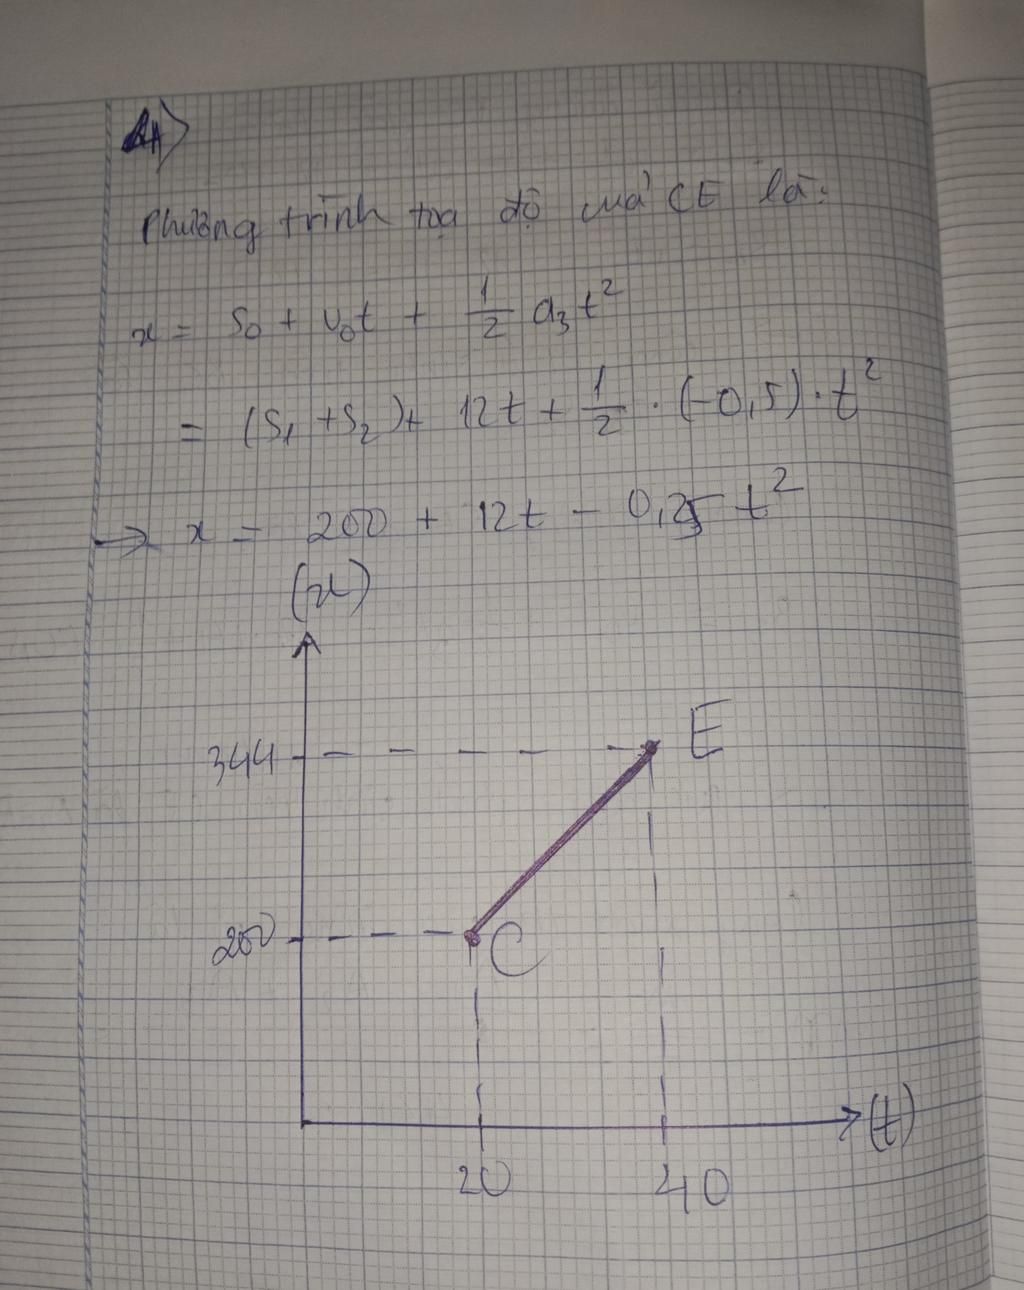 Phương trình toạ độ của CE là:
x = S₀ + v₀t + 1/2 a₃t²
= (S₁ + S₂) + 12t + 1/2 . (-0,5) . t²
→ x = 200 + 12t - 0,25 t²
(x)
344
E
200
C
(t)
20 40